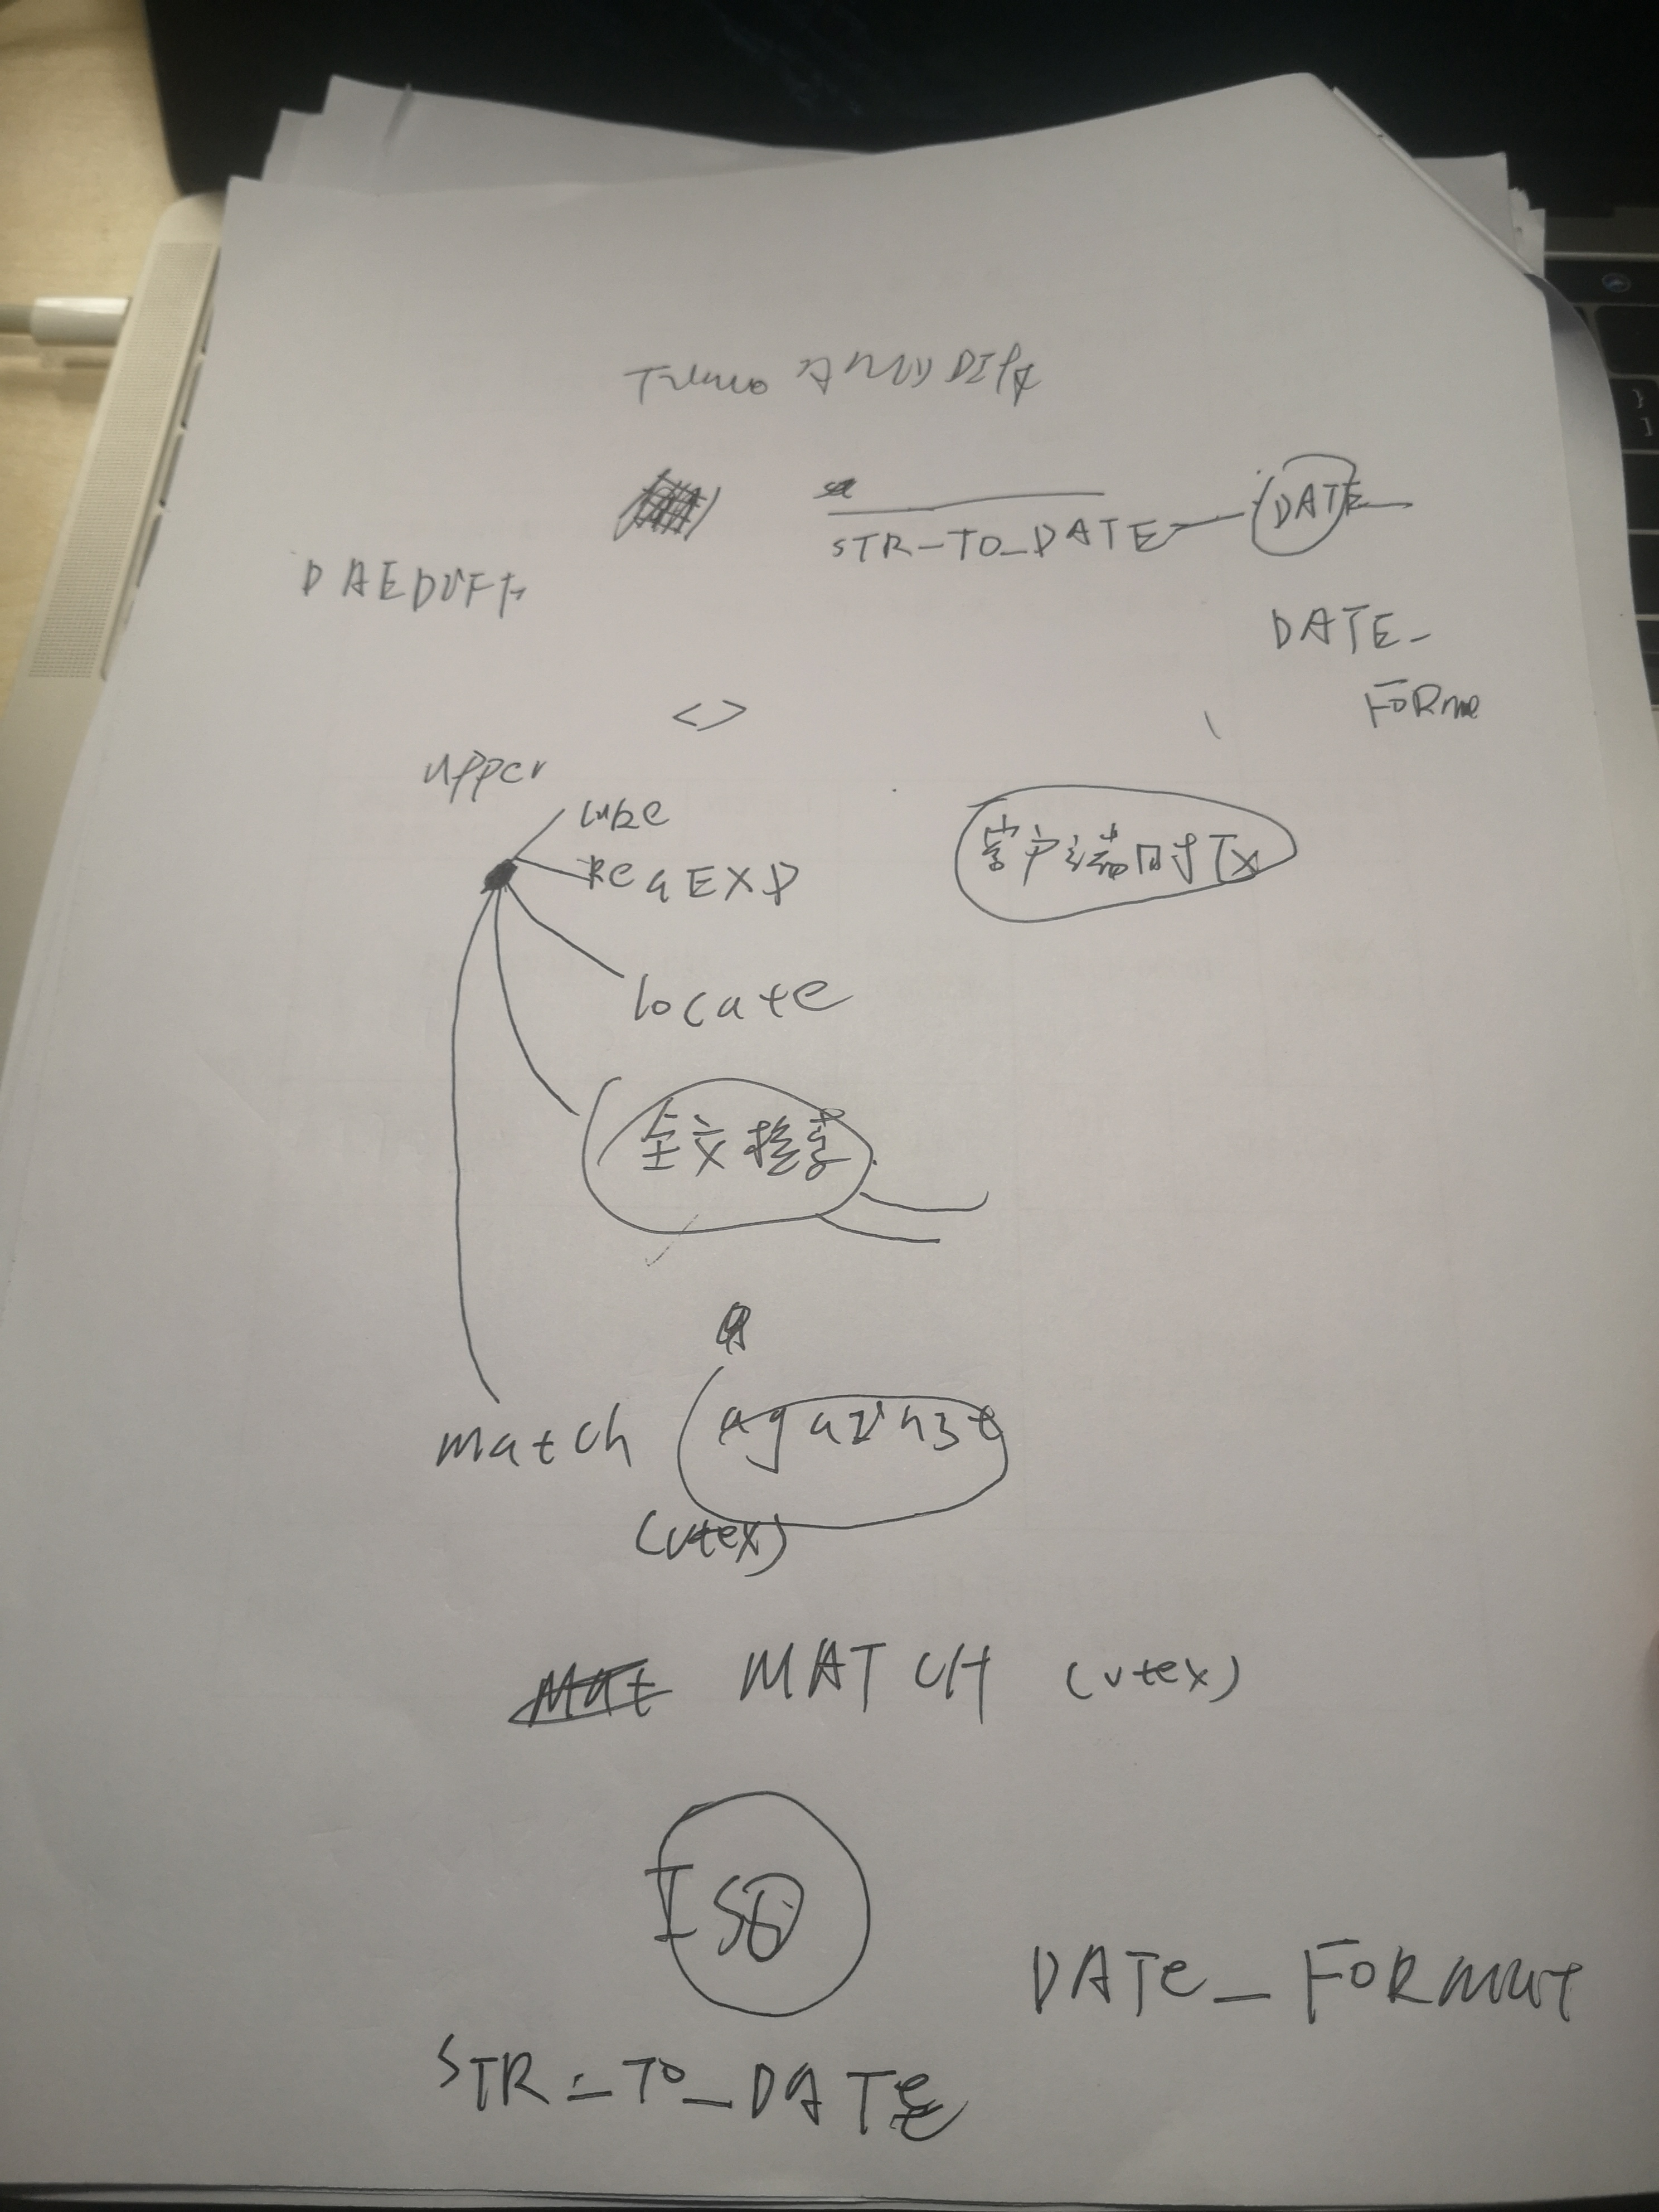 STR_TO_DATE DATE
DAEDIFF
DATE_
FORMa
<>
upper
REGEXP
客户端时区
locate
全文检索
match against
(vtex)
MATCH (vtex)
ISO
DATe_FORMat
STR_TO_DATE